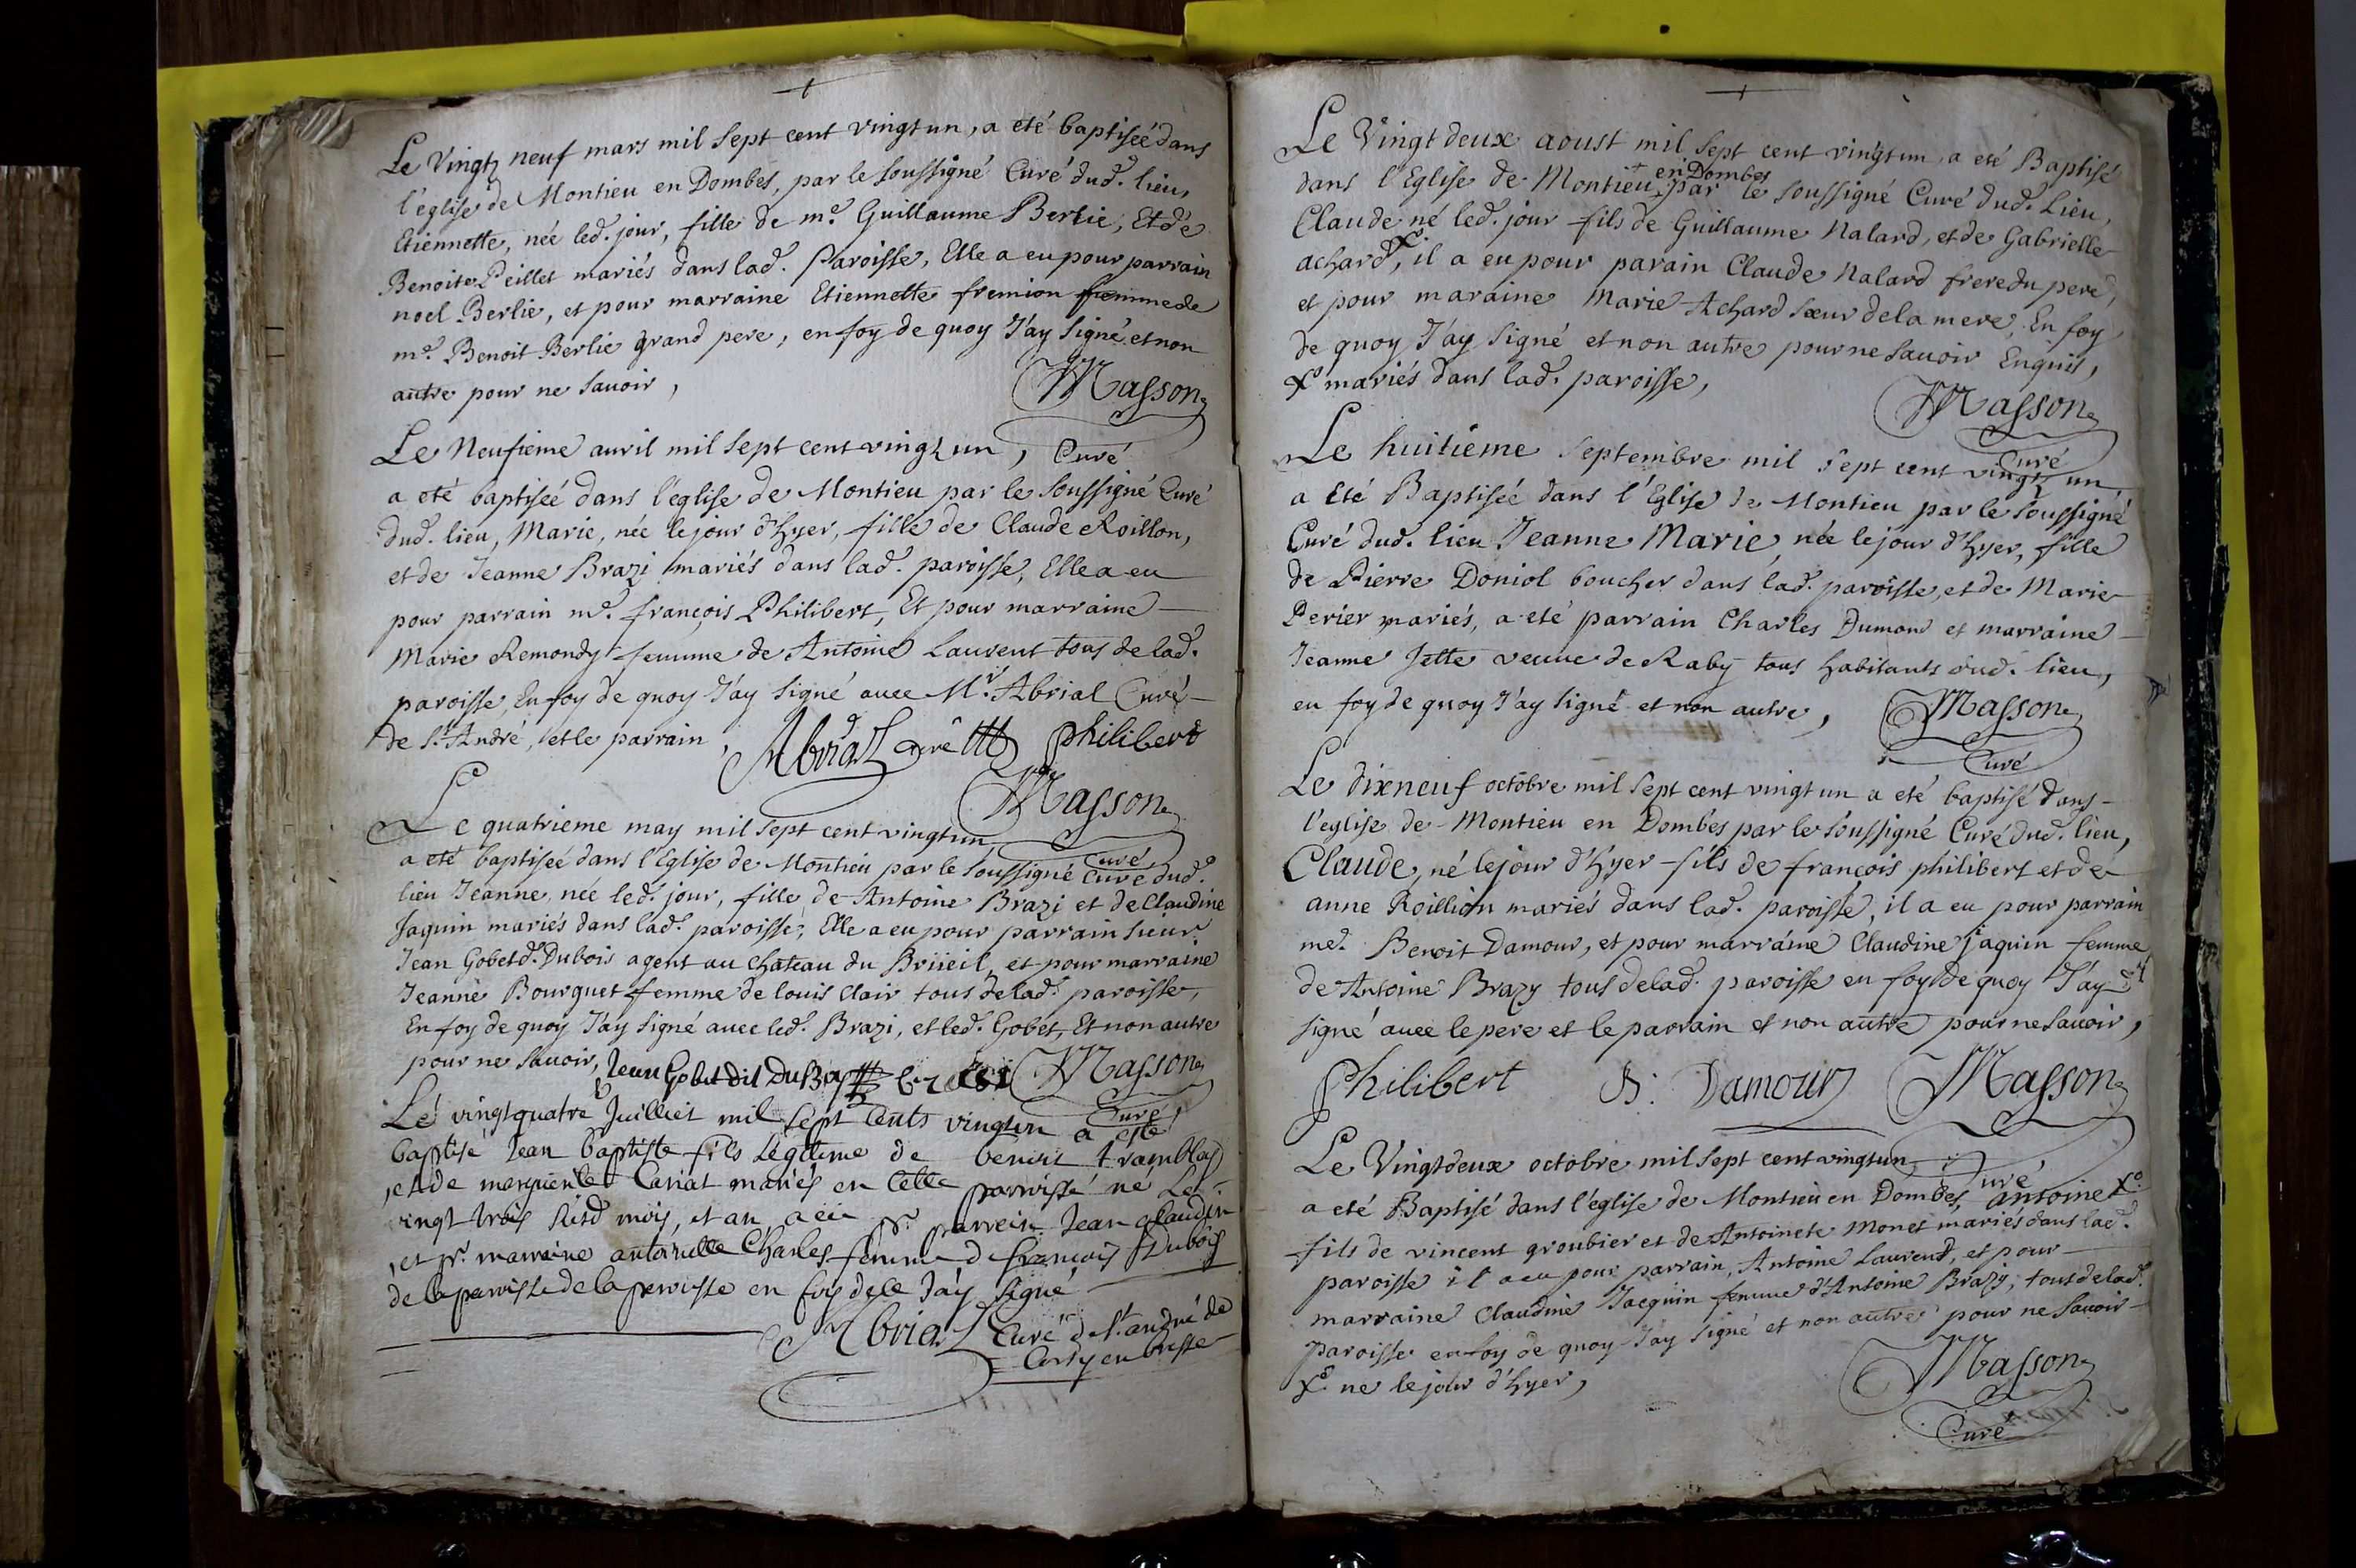 Le Vingt neuf mars mil sept cent vingt un, a eté baptiseé dans
l'église de Montieu en Dombes, par le soussigné Curé dud. lieu,
Etiennette, née led. jour, fille de me. Guillaume Berlie, Et de
Benoite Peillet mariés dans lad. Paroisse, Elle a eu pour parrain
noel Berlie, et pour marraine Etiennette fremion femme de
me. Benoit Berlie grand pere, en foy de quoy J'ay signé et non
autre pour ne savoir,
Masson
Curé
Le Neufieme avril mil sept cent vingt un,
a eté baptiseé dans l'église de Montieu par le soussigné Curé
dud. lieu, Marie, née le jour d'hyer, fille de Claude Roillon,
et de Jeanne Brazi mariés dans lad. paroisse, Elle a eu
pour parrain me. françois Philibert, Et pour marraine
Marie Remondy femme de Antoine Laurent tous de lad.
paroisse, En foy de quoy J'ay signé avec Mr. Abrial Curé
de St. André, et le parrain,
Abrial curé Philibert
Masson
Curé
Le quatrieme may mil sept cent vingt un,
a eté baptiseé dans l'Eglise de Montieu par le soussigné Curé dud.
lieu Jeanne, née led. jour, fille de Antoine Brazi et de Claudine
Jaquin mariés dans lad. paroisse, Elle a eu pour parrain sieur
Jean Gobet d. Dubois agent au chateau du Brüeil, et pour marraine
Jeanne Bourquet femme de louis Clair tous de lad. paroisse,
En foy de quoy J'ay signé avec led. Brazi, et led. Gobet, Et non autre
pour ne savoir, Jean Gobet dit DuBois Masson
Curé
Le vingt quatre Juilliet mil sept cents vingt un a esté
baptisé Jean baptiste fils Legitime de benoit tramblay
et de marguerite Cariat mariés en cette parroisse né Le
vingt trois susd mois, et an, a eu pr. parrein Jean claudin
et pr. marreine antoinette Charles femme d francois Dubois
de la paroisse de la peroisse en foy de ce J'ay signé
Abrial Curé de St. andré de
Corcy en bresse
Le Vingt deux aoust mil sept cent vingt un, a eté Baptisé
en Dombes
dans l'Eglise de Montieu + par le soussigné Curé dud. Lieu,
Claude né led. jour fils de Guillaume Nalard, et de Gabrielle
achard, il a eu pour parain Claude Nalard frere du pere,
et pour maraine Marie Achard sœur de la mere, En foy
de quoy J'ay signé et non autre pour ne savoir Enquis,
Xo mariés dans lad. paroisse,
Masson
Curé
Le huitieme septembre mil sept cent vingt un
a Eté Baptiseé dans l'Eglise de Montieu par le soussigné
Curé dud. lieu Jeanne Marie née le jour d'hyer, fille
de Pierre Doniol boucher dans lad. paroisse, et de Marie
Perier mariés, a eté parrain Charles Dumond et marraine
Jeanne Jette veuve de Raby tous habitants dud. lieu,
en foy de quoy J'ay signé et non autre,
Masson
Curé
Le dixneuf octobre mil sept cent vingt un a eté baptisé dans
l'eglise de Montieu en Dombes par le soussigné Curé dud. lieu,
Claude, né le jour d'hyer fils de françois philibert et de
anne Roillion mariés dans lad. paroisse, il a eu pour parrain
me. Benoit Damour, et pour marraine Claudine jaquin femme
de Antoine Brazy tous de lad. paroisse en foy de quoy J'ay
signé avec le pere et le parrain et non autre pour ne savoir,
Philibert B. Damour Masson
Curé
Le Vingt deux octobre mil sept cent vingt un
a eté Baptisé dans l'église de Montieu en Dombes, antoine Xo
fils de vincent groubier et de Antoinete Monet mariés dans lad.
paroisse il a eu pour parrain, Antoine Laurent, et pour
marraine Claudine Jacquin femme d'Antoine Brazy, tous de lad.
paroisse en foy de quoy J'ay signé et non autre pour ne savoir
Xo né le jour d'hyer,
Masson
Curé